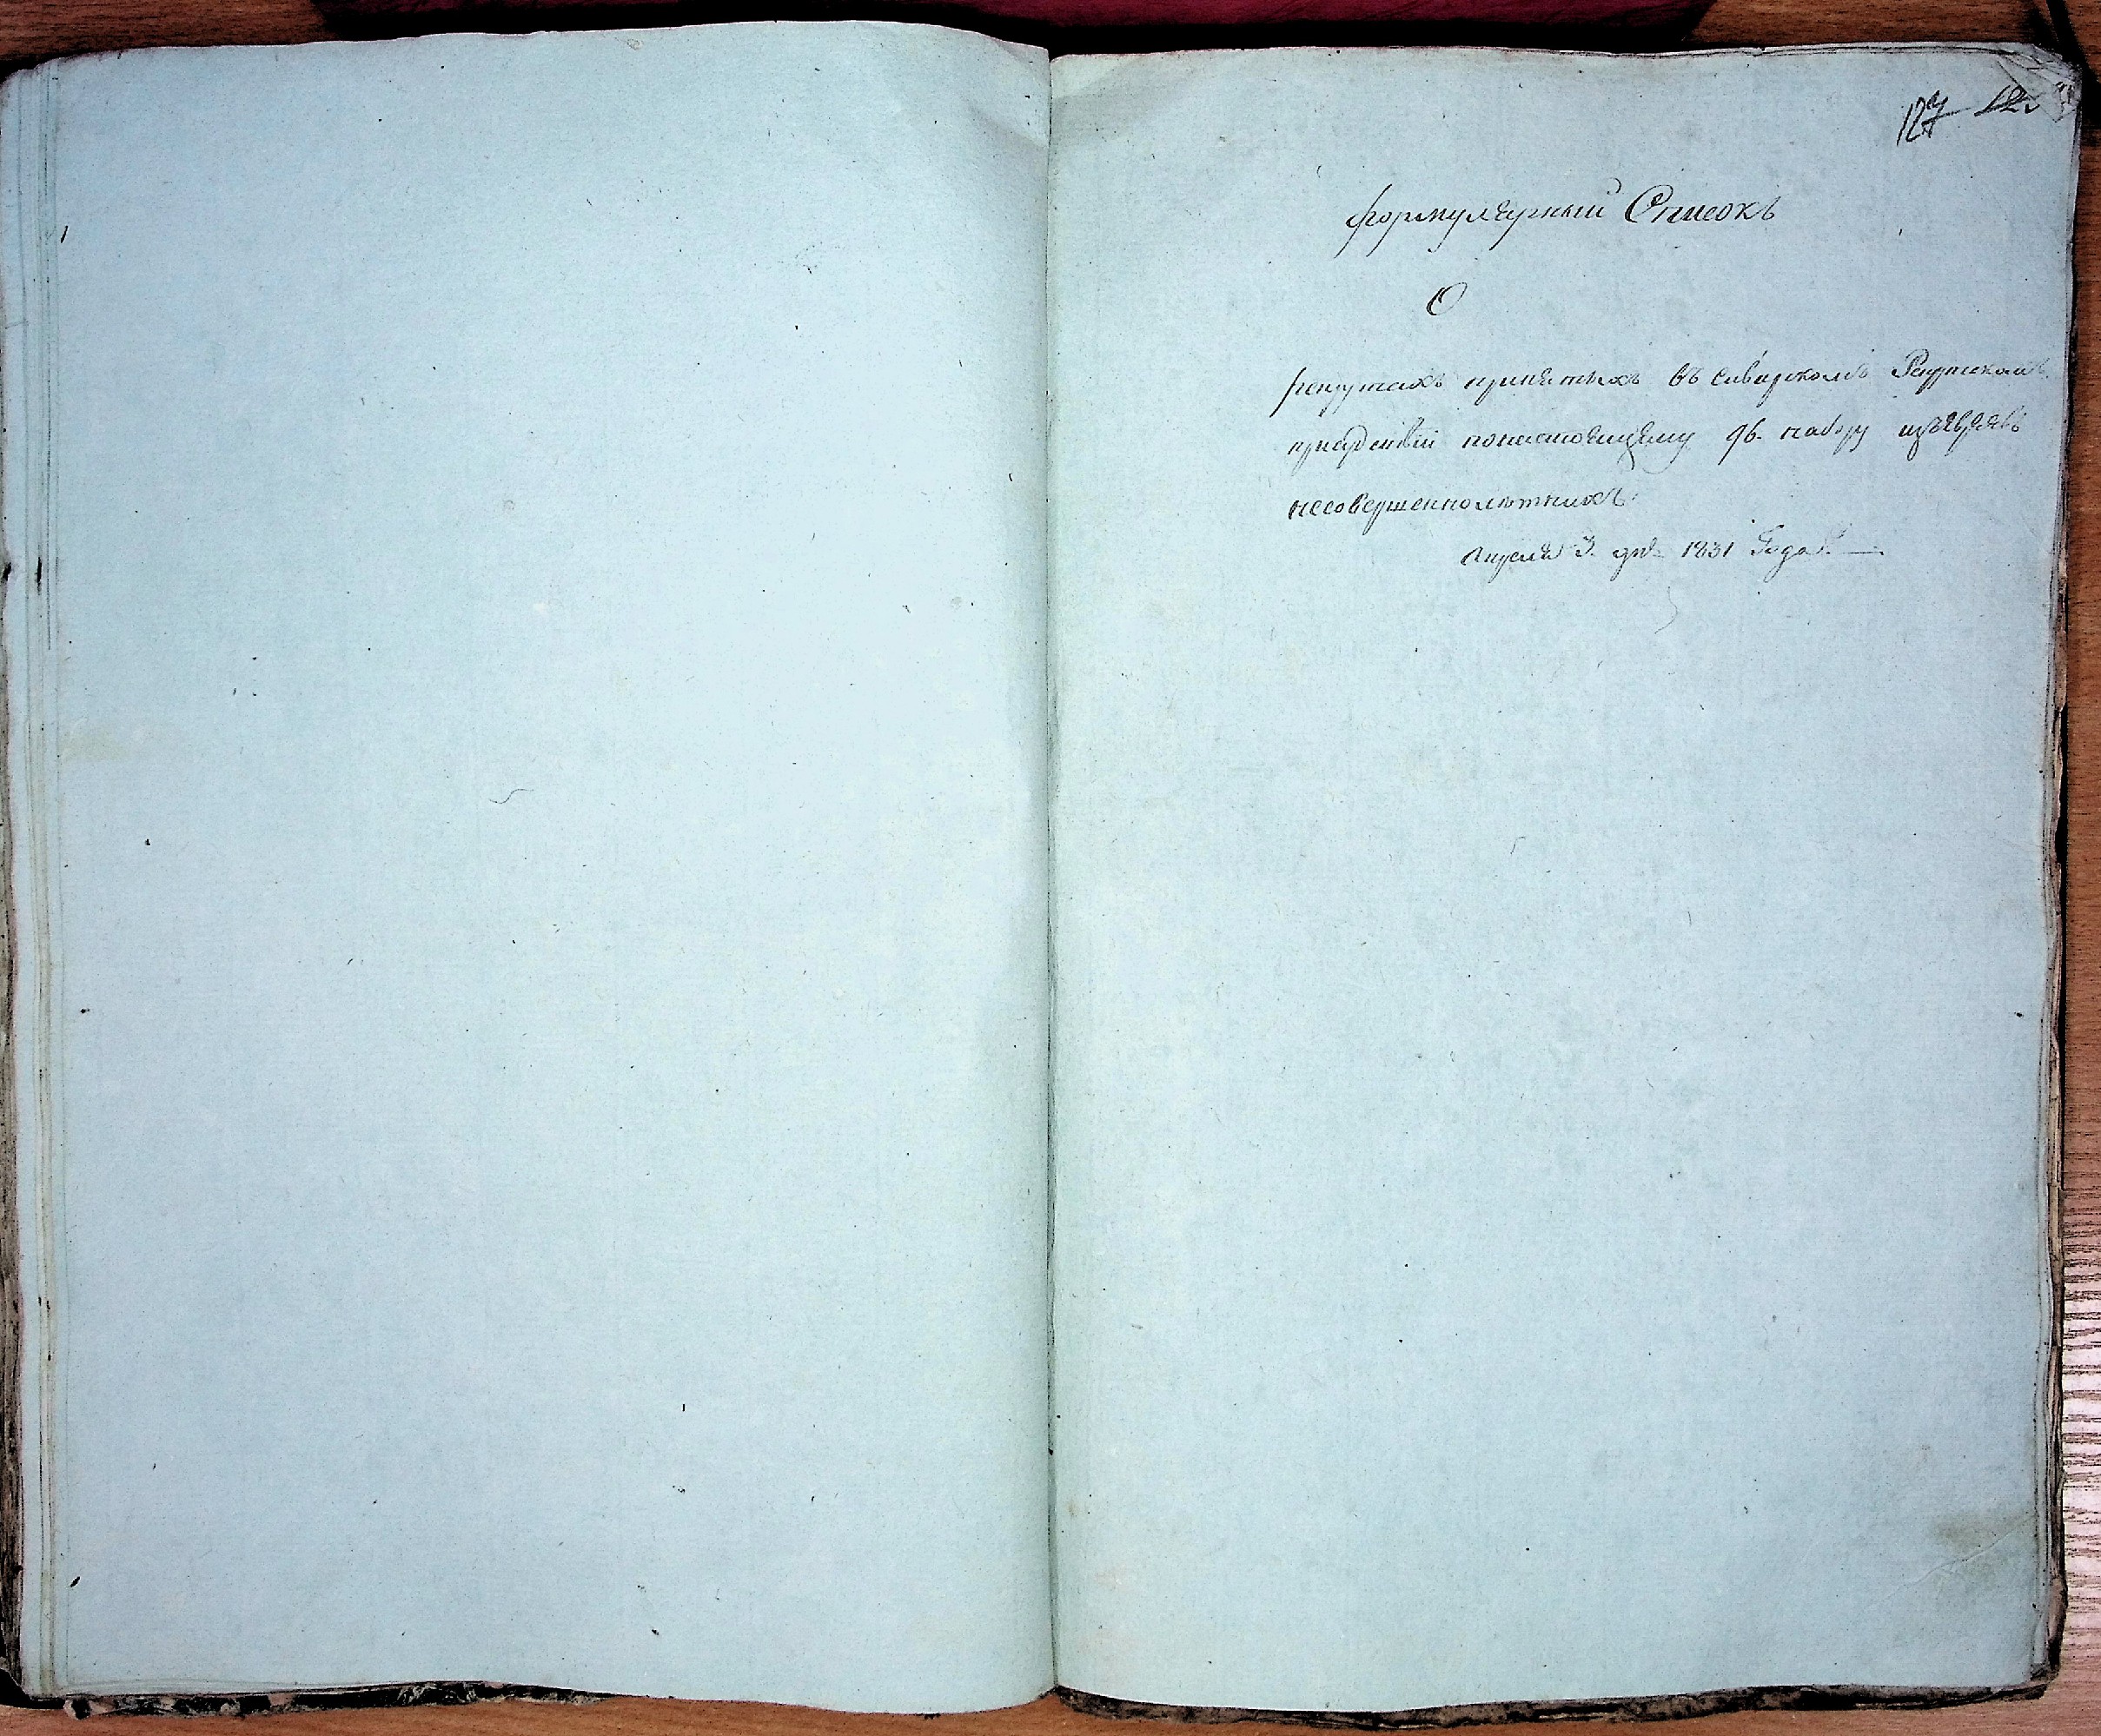 127 12
формулярный Списокъ
О
рекрутахъ принятыхъ въ сквирскомъ Рекрутскомъ
присудствіи понастоящему 96. набору изъевреевъ
несовершеннолѣтнихъ.
Апреля 3. дня 1831 Года.